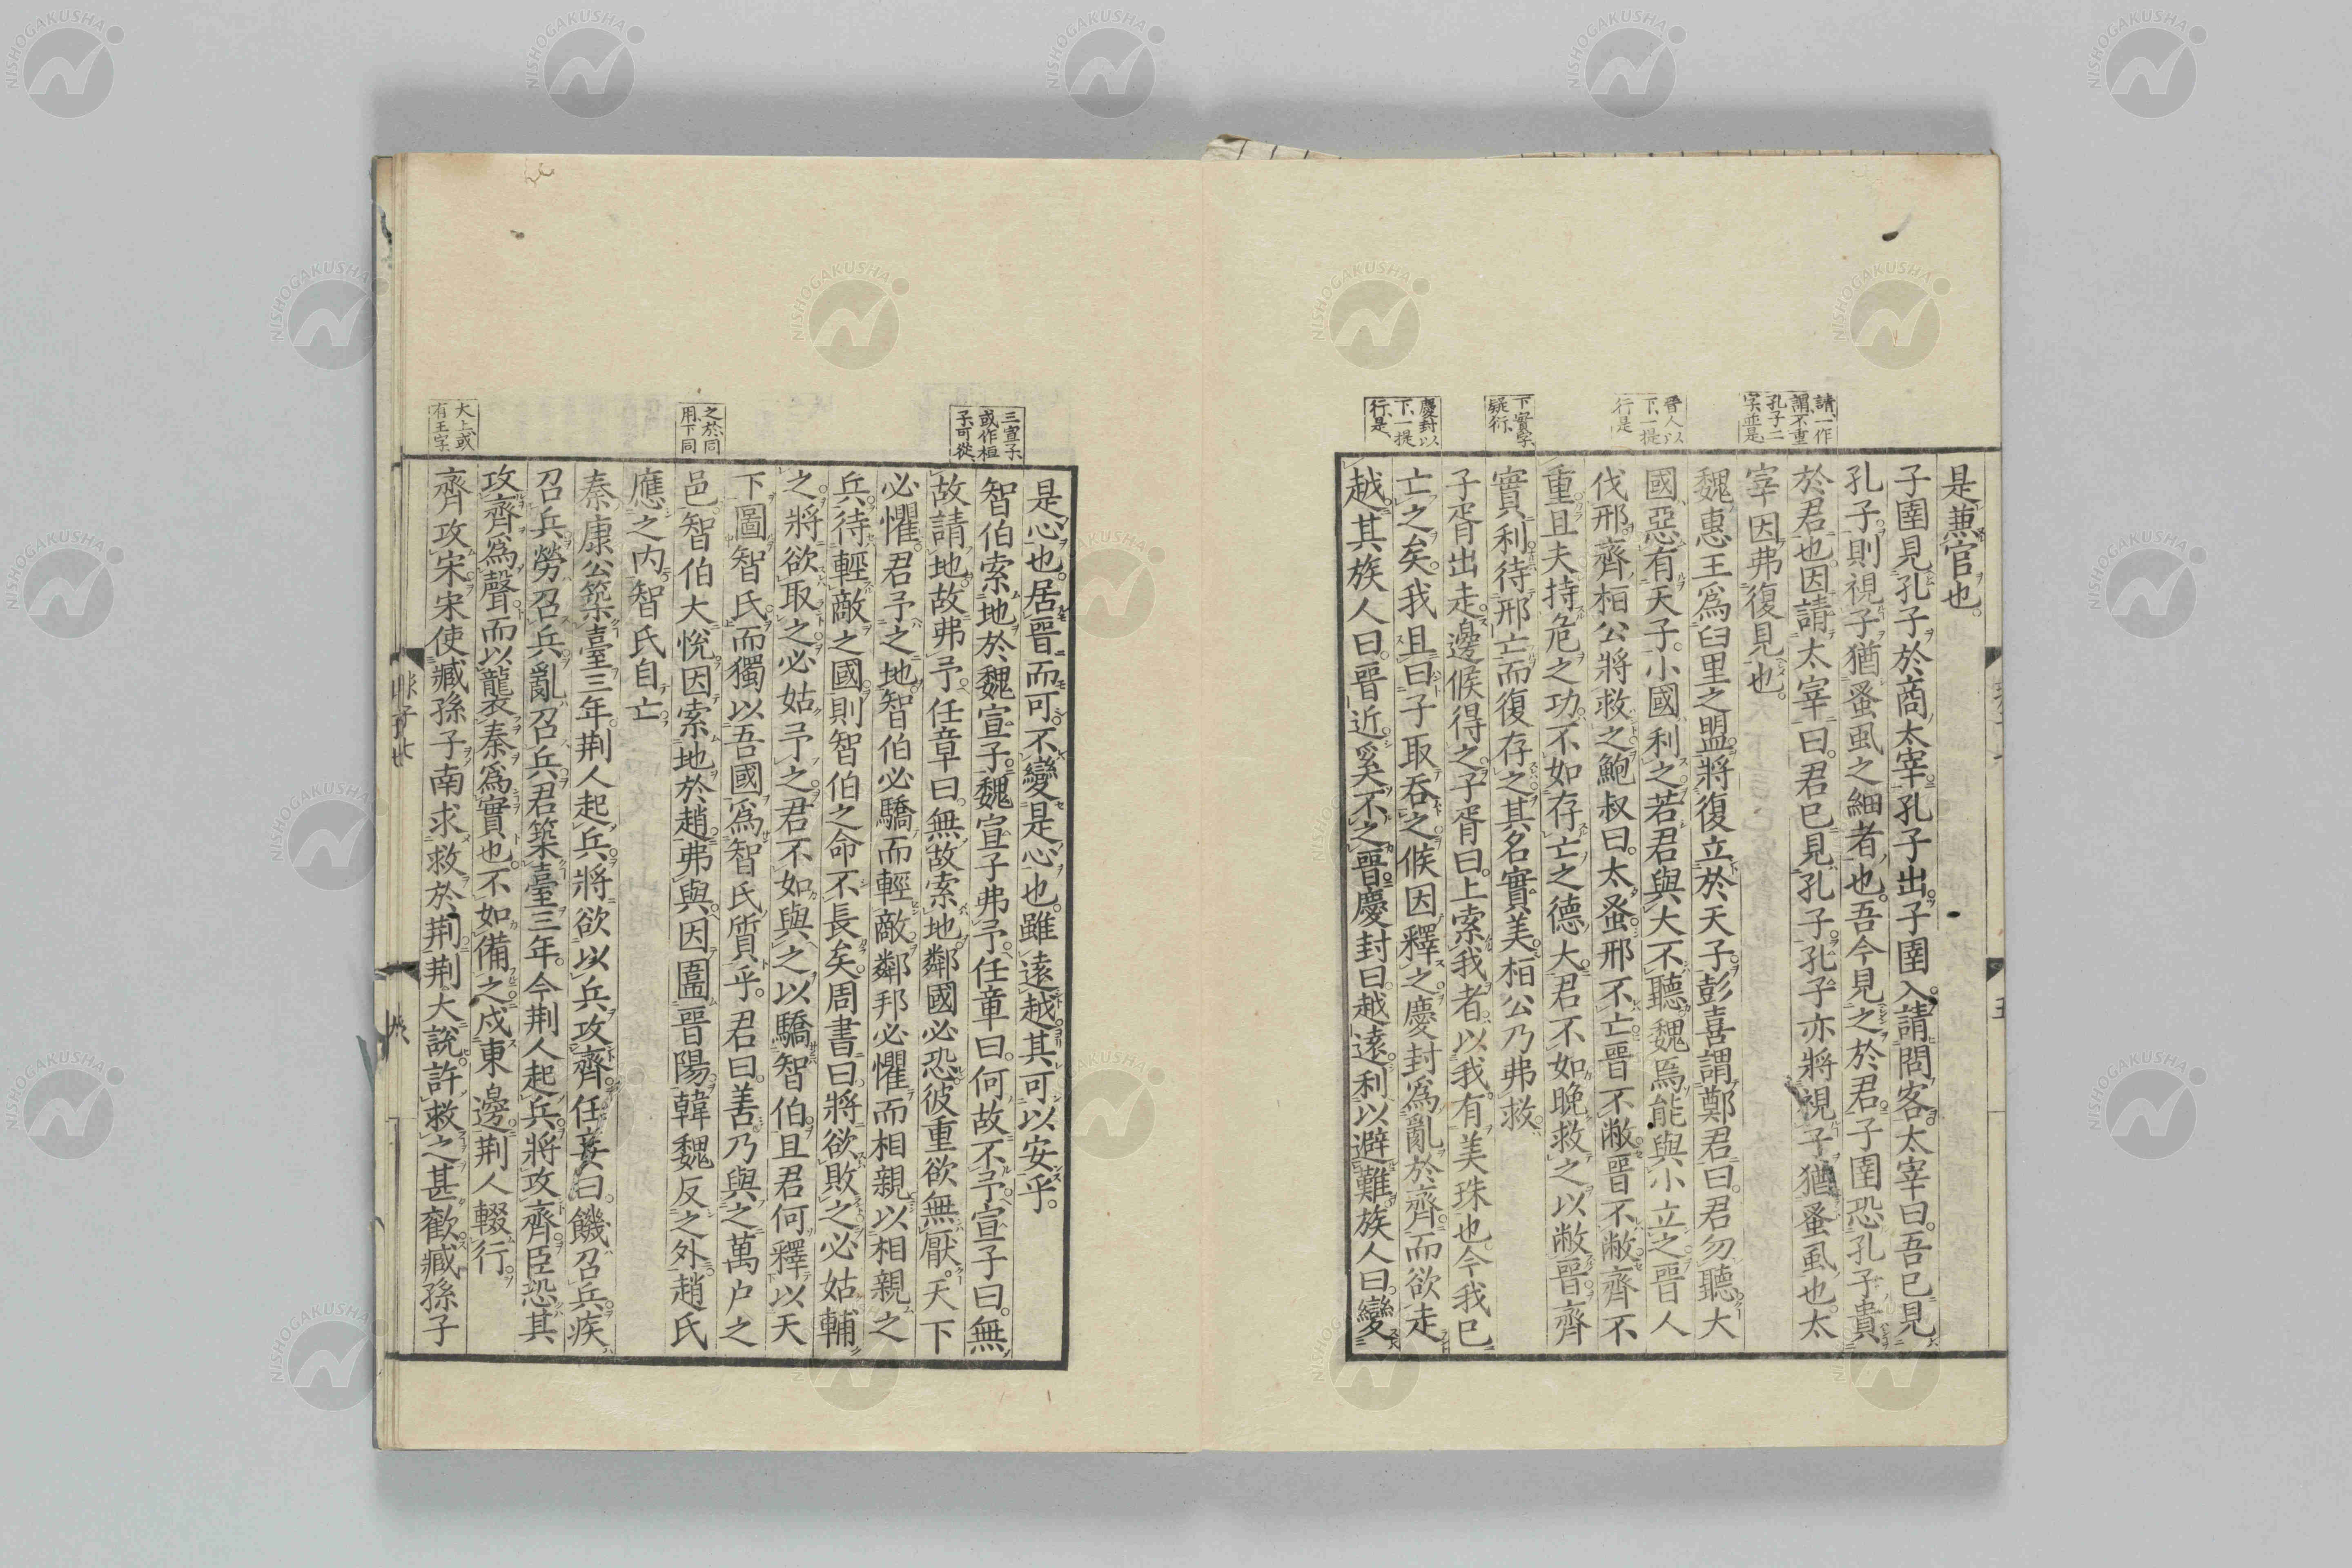 請一作
謂不重
孔子二
字並是
晉人以
下一提
行是
下實字
疑衍
慶封以
下一提
行是
是兼官也。
子圉見孔子於商太宰孔子出子圉入請問客太宰曰吾已見
孔子則視子猶蚤虱之細者也吾今見之於君子圉恐孔子貴
於君也因請太宰曰君已見孔子孔子亦將視子猶蚤虱也太
宰因弗復見也
魏惠王爲臼里之盟將復立於天子彭喜謂鄭君曰君勿聽大
國惡有天子小國利之若君與大不聽魏焉能與小立之晉人
伐邢齊桓公將救之鮑叔曰太蚤邢不亡晉不敝晉不敝齊不
重且夫持危之功不如存亡之德大君不如晚救之以敝晉齊
實利待邢亡而復存之其名實美桓公乃弗救
子胥出走邊候得之子胥曰上索我者以我有美珠也今我已
亡之矣我且曰子取吞之候因釋之慶封爲亂於齊而欲走
越其族人曰晉近奚不之晉慶封曰越遠利以避難族人曰變
三宣子
或作桓
子可從
之於同
用下同
大上或
有王字
是心也居晉而可不變是心也雖遠越其可以安乎
智伯索地於魏宣子魏宣子弗予任章曰何故不予宣子曰無
故請地故弗予任章曰無故索地鄰國必恐彼重欲無厭天下
必懼君予之地智伯必驕而輕敵鄰邦必懼而相親以相親之
兵待輕敵之國則智伯之命不長矣周書曰將欲敗之必姑輔
之將欲取之必姑予之君不如與之以驕智伯且君何釋以天
下圖智氏而獨以吾國爲智氏質乎君曰善乃與之萬户之
邑智伯大悅因索地於趙弗與因圍晉陽韓魏反之外趙氏
應之内智氏自亡
秦康公築臺三年荆人起兵將欲以兵攻齊任妄曰饑召兵疾
召兵勞召兵亂召兵君築臺三年今荆人起兵將攻齊臣恐其
攻齊爲聲而以襲秦爲實也不如備之戍東邊荆人輟行
齊攻宋宋使臧孫子南求救於荆荆大說許救之甚歡臧孫子
NISHOGAKUSHA